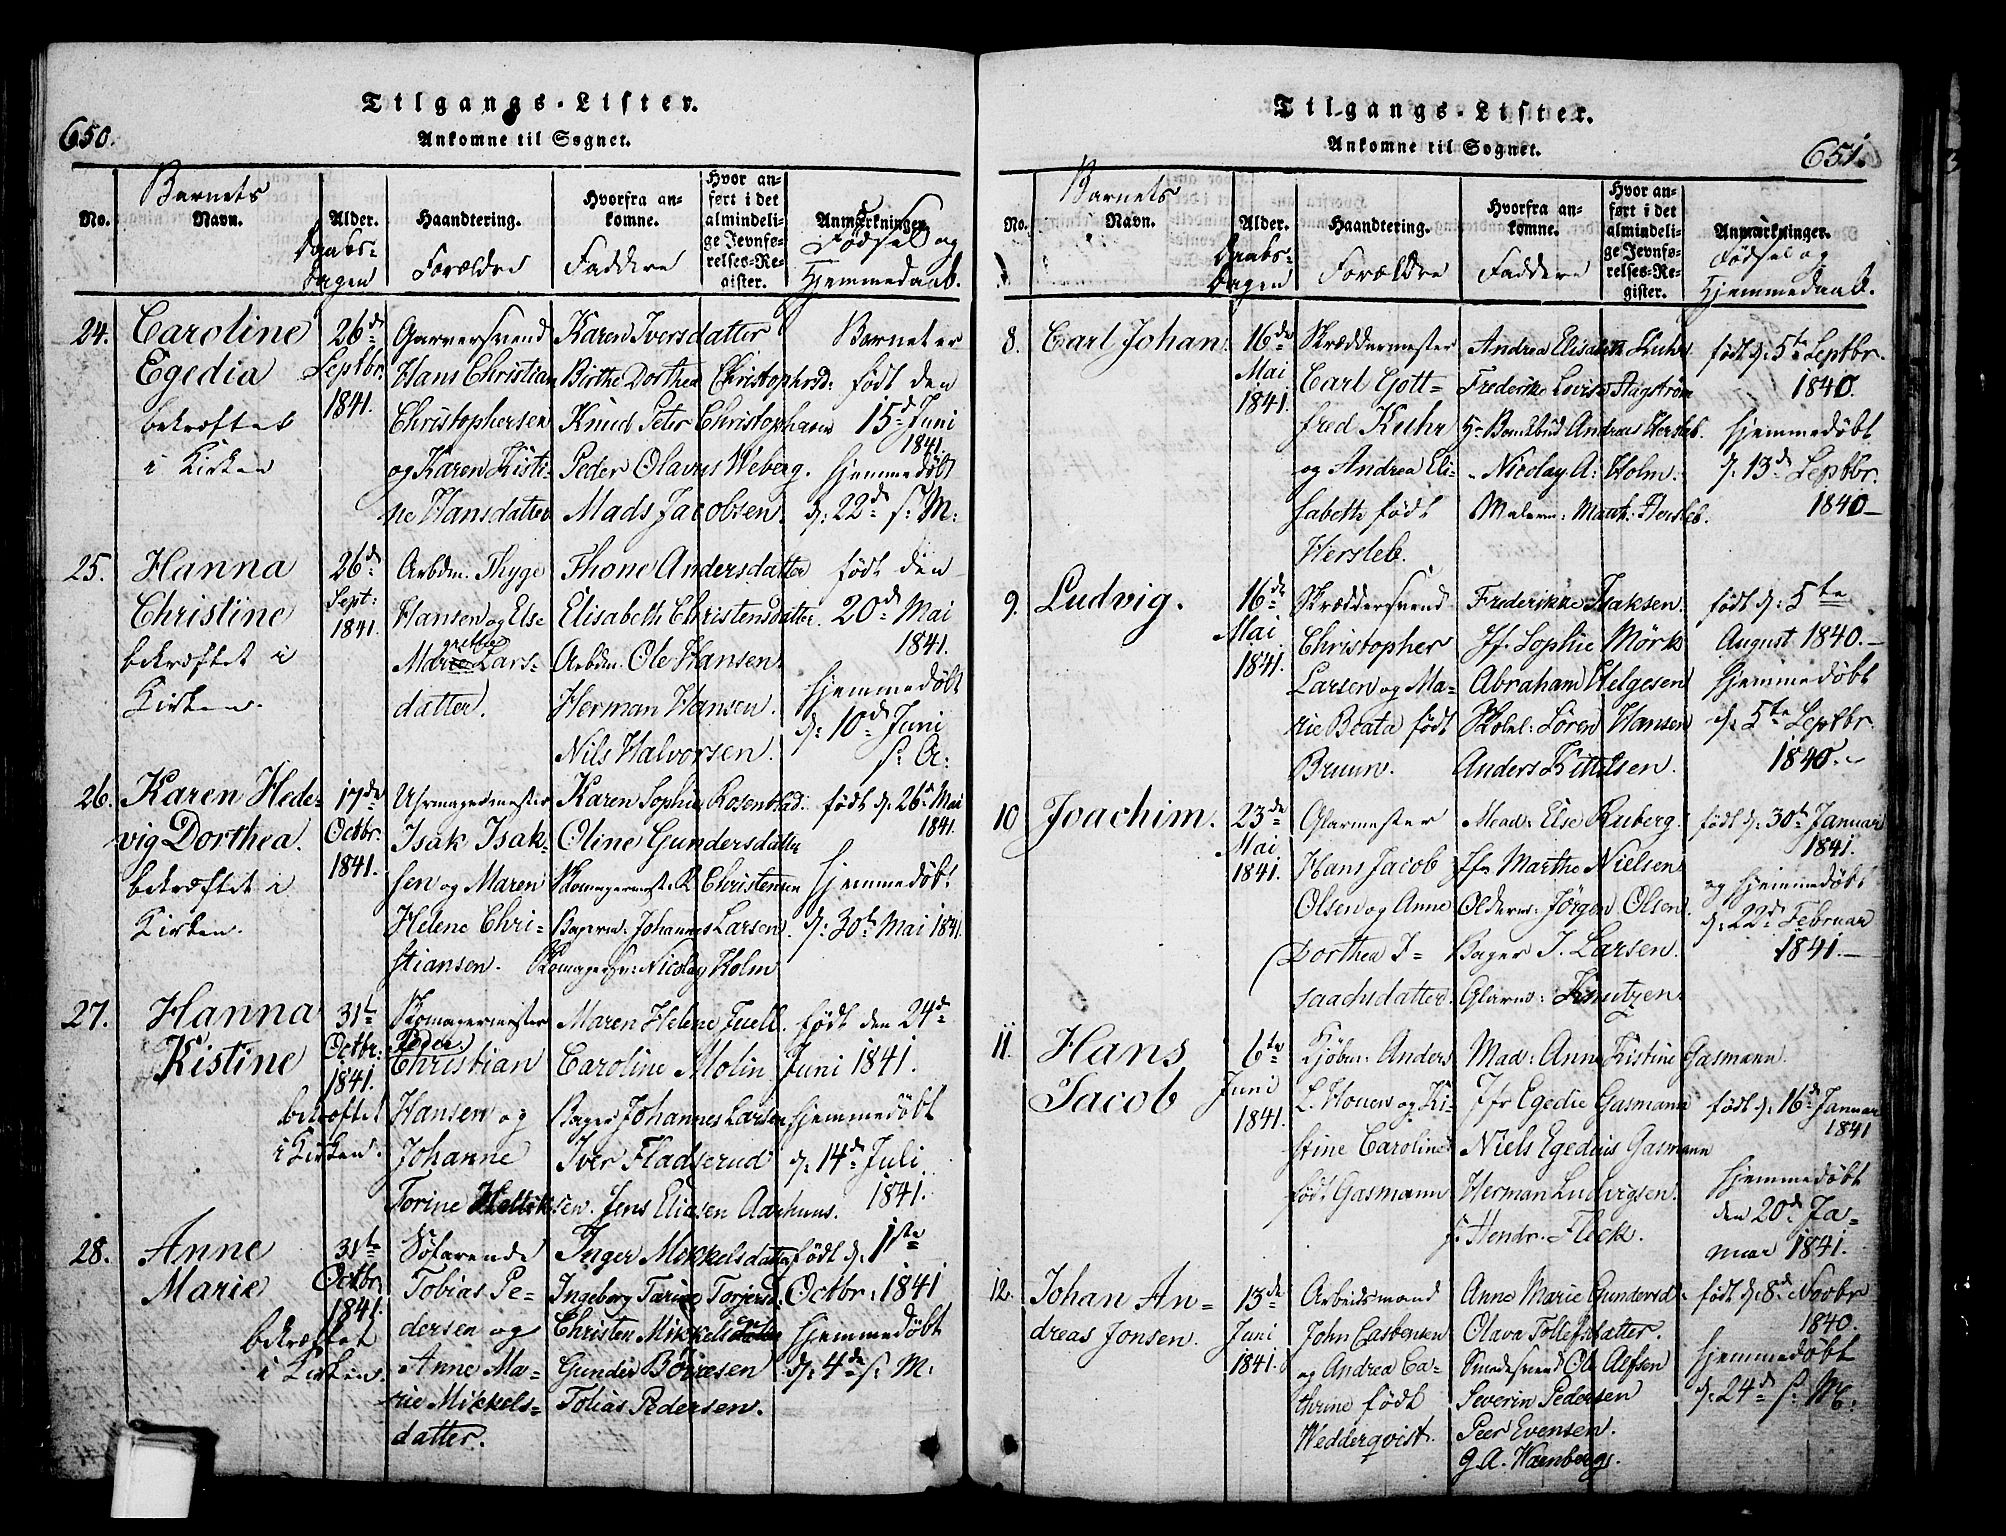 650.
Tilgangs-Lister.
Ankomne til Sognet.
No.
Barnets
Navn.
Alder.
Daabs-
dagen
Haandtering.
Forældre
Hvorfra an-
komne.
Faddere
Hvor an-
ført i det
almindeli-
ge Jevnfø-
relses-Re-
gister.
Anmærkninger.
Fødsel og
Hjemmedaab.
24.
Caroline
Egedia
bekræftet
i Kirken
26de
Septbr.
1841.
Garversvend
Hans Christian
Christophersen
og Karen Kisti-
ne Hansdatter
Karen Iversdatter
Birthe Dorthea Christophrsd:
Knud Peter Christophersen
Peder Olavus Weberg.
Mads Jacobsen.
Barnet er
født den
15de Juni
1841.
hjemmedøbt
d: 22de s: M:
25.
Hanna
Christine
bekræftet i
Kirken.
26de
Sept:
1841.
Arbdm. Thyge
Hansen og Else
grethe
Marie Lars-
datter.
Thone Andersdatter
Elisabeth Christensdatter.
Arbdm. Ole Hansen.
Herman Hansen.
Nils Halvorsen.
født den
20de Mai
1841.
hjemmedøbt
d: 10de Juni
s: A:
26.
Karen Hede-
vig Dorthea.
bekræftet i
Kirken.
17de
Octbr.
1841.
Uhrmagermester
Isak Isak-
sen og Maren
Helene Chri-
stiansen.
Karen Sophie Rosenblad.
Oline Gundersdatter
Skomagermest: R Christensen
Bagerm: Johannes Larsen.
Skomagersv: Nicolay Holm
født d. 26de Mai
1841.
hjemmedøbt
d: 30te Mai 1841.
27.
Hanna
Kistine
bekræftet
i Kirken.
31te
Octbr:
1841.
Skomagermester
Peder
Christian
Hansen og
Johanne
Torine
Maren Helene Juell.
Caroline Molin
Bager Johannes Larsen
Iver Fladserud
Jens Eliasen Aarhuus.
født den 24de
Juni 1841.
hjemmedøbt
d: 14de Juli
1841.
28.
Anne
Marie
bekræftet
i Kirken.
31te
Octbr
1841.
Søfarende
Tobias Pe-
dersen og
Anne Ma-
rie Mikkels-
datter.
Inger Mikkelsdatter
Ingeborg Tarine Torjersd.
Christen Mikkelsen
Gunder Børresen
Tobias Pedersen.
født d. 1ste
Octbr: 1841
hjemmedøbt
d: 4de s: M:
Tilgangs-Lister.
Ankomne til Sognet.
651.
No.
Barnets
Navn.
Alder.
Daabs-
dagen
Haandtering.
Forældre
Hvorfra an-
komne.
Faddere
Hvor an-
ført i det
almindeli-
ge Jevnfø-
relses-Re-
gister.
Anmærkninger.
Fødsel og
Hjemmedaab.
8.
Carl Johan.
16de
Mai
1841.
Skræddermester
Carl Gott-
fred Kuhr
og Andrea Eli-
sabeth født
Hersleb.
Andrea Elisabeth Kuhr
Frederikke Lovise Hagstrøm
Hr Bankbud Andreas Hersleb.
Nicolay A: Holm.
Malerm: Hersleb.
født d: 5te Septbr.
1840.
hjemmedøbt
d: 13de Septbr.
1840—
9.
Ludvig.
16de
Mai
1841.
Skræddersvend
Christopher
Larsen og Ma-
rie Beata født
Bruun.
Frederikke Isaksen.
Jfr. Sophie Mörk
Abraham Helgesen
Skolel: Sören Hansen
Anders Kittilsen.
født d: 5te
August 1840.—
hjemmedøbt
d: 5te Septbr.
1840.—
10
Joachim.
23de
Mai
1841.
Glarmester
Hans Jacob
Olsen og Anne
Dorthea I-
saachsdatter.
Mad: Else Ruberg.
Jfr Marthe Nielsen
Olderm: Jörgen Olsen.
Bager J. Larsen.
Glarm: Knutzen.
født d: 30te Januar
1841.
og hjemmedøbt
d: 22de Februar
1841.—
11.
Hans
Jacob
6te
Juni
1841.
Kjøbm: Anders
L. Houen og Ki-
stine Caroline
født Gasmann
Mad: Anne Kistine Gasmann.
Jfr Egedie Gasmann
Niels Egedius Gasmann
Herman Ludvigsen.
Hendr. Fleck.
født d: 16de Januar
1841
hjemmedøbt
den 20de Ja-
nuar 1841.
12.
Johan An-
dreas Jonsen.
13de
Juni
1841.
Arbeidsmand
John Carstensen
og Andrea Ca-
thrine født
Wedderqvist.
Anne Marie Gundersd:
Olava Tollefsdatter.
Smedesvend Ole Alfsen
Severin Pedersen
Peer Evensen.
G. A. Warnberg.
født d: 8de Novbr
1840.
hjemmedøbt
d: 24de s: M: